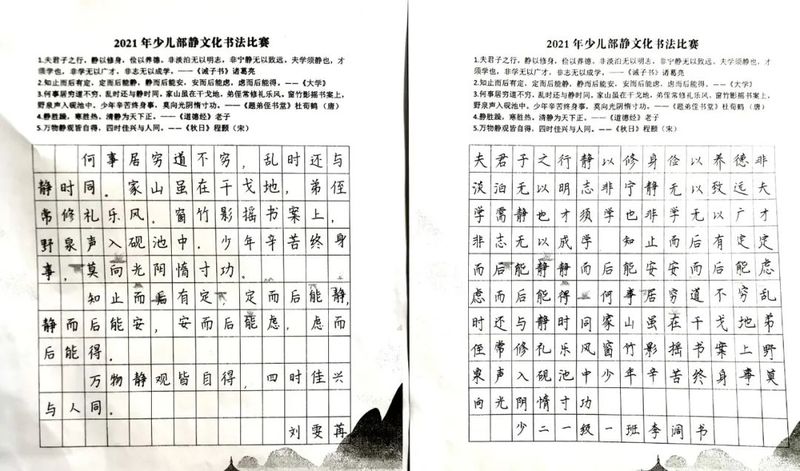 2021年少儿部静文化书法比赛
1.夫君子之行，静以修身，俭以养德，非淡泊无以明志，非宁静无以致远。夫学须静也，才
须学也，非学无以广才，非志无以成学。——《诫子书》诸葛亮
2.知止而后有定，定而后能静，静而后能安，安而后能虑，虑而后能得。——《大学》
3.何事居穷道不穷，乱时还与静时同。家山虽在干戈地，弟侄常修礼乐风。窗竹影摇书案上，
野泉声入砚池中。少年辛苦终身事，莫向光阴惰寸功。——《题弟侄书堂》杜荀鹤（唐）
4.静胜躁，寒胜热，清静为天下正。——《道德经》老子
5.万物静观皆自得，四时佳兴与人同。——《秋日》程颢（宋）
何事居穷道不穷，乱时还与
静时同。家山虽在干戈地，弟侄
常修礼乐风。窗竹影摇书案上，
野泉声入砚池中。少年辛苦终身
事，莫向光阴惰寸功。
知止而后有定，定而后能静，
静而后能安，安而后能虑，虑而
后能得。
万物静观皆自得，四时佳兴
与人同。
刘雯苒
2021年少儿部静文化书法比赛
1.夫君子之行，静以修身，俭以养德，非淡泊无以明志，非宁静无以致远。夫学须静也，才
须学也，非学无以广才，非志无以成学。——《诫子书》诸葛亮
2.知止而后有定，定而后能静，静而后能安，安而后能虑，虑而后能得。——《大学》
3.何事居穷道不穷，乱时还与静时同。家山虽在干戈地，弟侄常修礼乐风。窗竹影摇书案上，
野泉声入砚池中。少年辛苦终身事，莫向光阴惰寸功。——《题弟侄书堂》杜荀鹤（唐）
4.静胜躁，寒胜热，清静为天下正。——《道德经》老子
5.万物静观皆自得，四时佳兴与人同。——《秋日》程颢（宋）
夫君子之行静以修身俭以养德非
淡泊无以明志非宁静无以致远夫
学需静也才须学也非学无以广才
非志无以成学 知止而后有定定
而后能静静而后能安安而后能虑
虑而后能得 何事居穷道不穷乱
时还与静时同家山虽在干戈地弟
侄常修礼乐风窗竹影摇书案上野
泉声入砚池中少年辛苦终身事莫
向光阴惰寸功
少二一级一班李润书